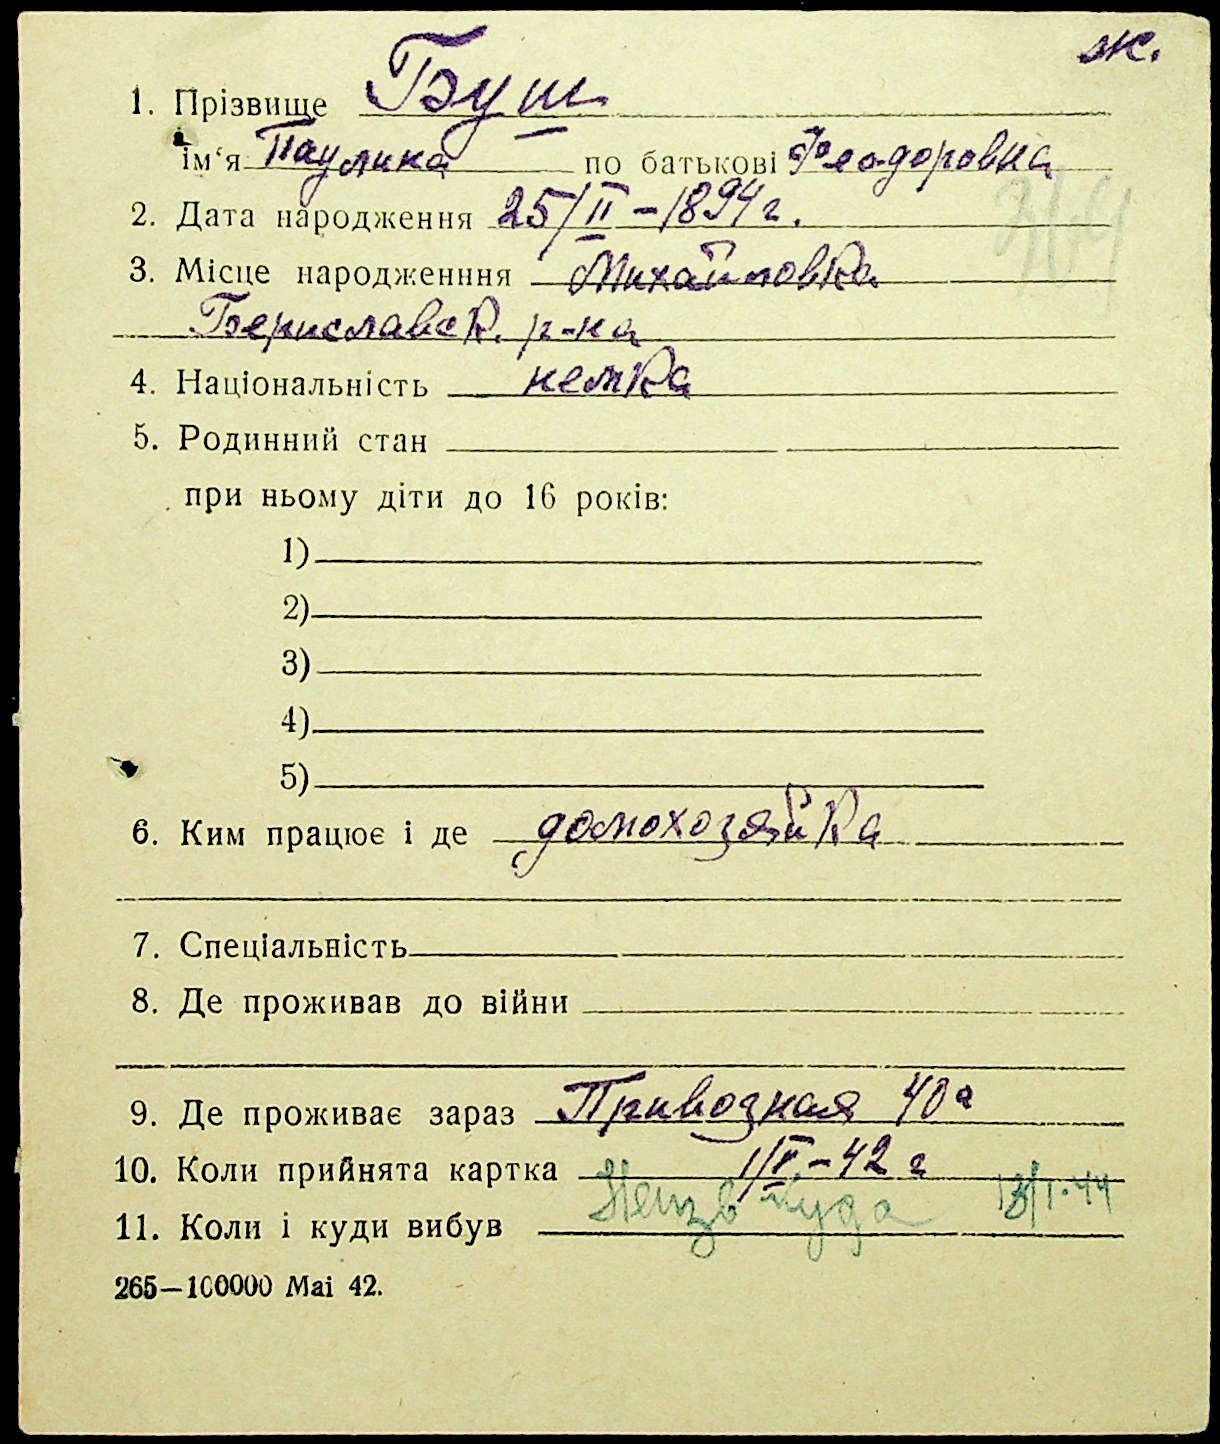 ж.
1. Прізвище Буш
ім'я Паулина по батькові Феодоровна
2. Дата народження 25/II – 1894 г.
3. Місце народженння Михайловка
Бериславск. р-на
4. Національність немка
5. Родинний стан
при ньому діти до 16 років:
1)
2)
3)
4)
5)
6. Ким працює і де домохозяйка
7. Спеціальність
8. Де проживав до війни
9. Де проживає зараз Привозная 40а
10. Коли прийнята картка 1/V – 42 г
11. Коли і куди вибув Неизв куда 13/1.44
265—100000 Маі 42.